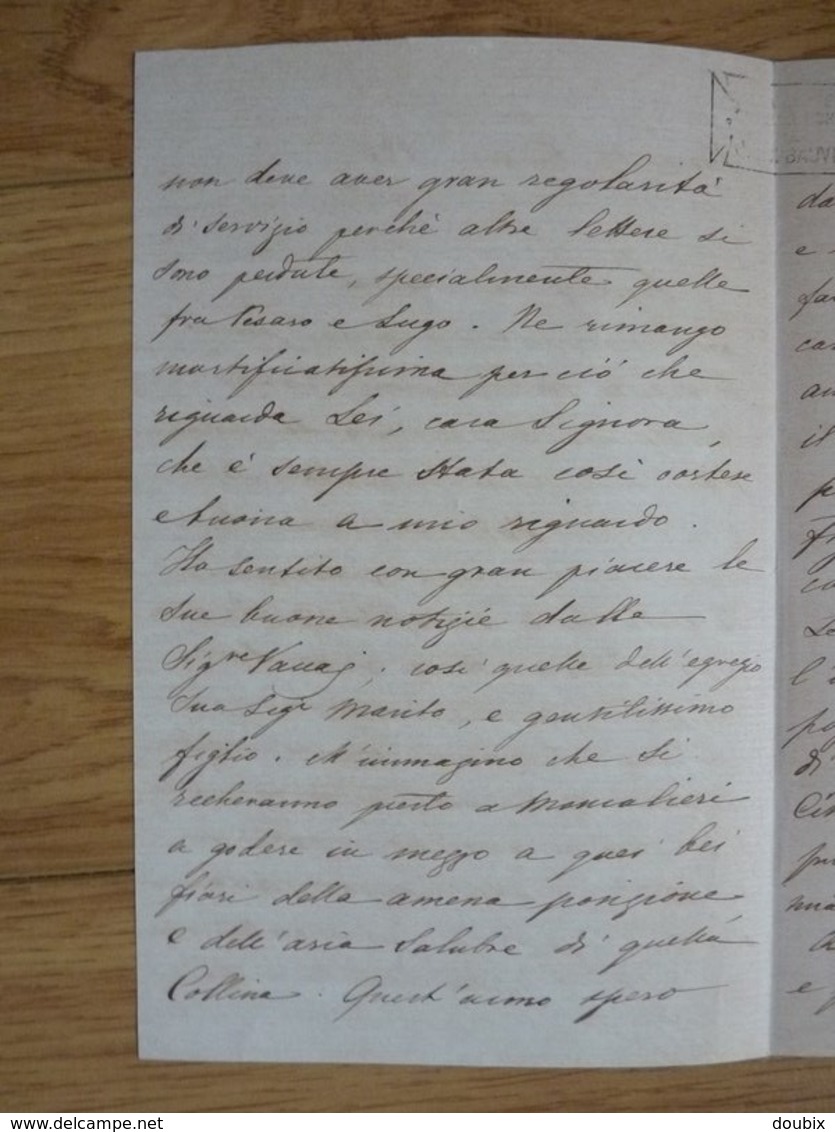 non deve aver gran regolarità
di servizio perchè altre lettere si
sono perdute, specialmente quelle
fra Pesaro e Lugo. Ne rimango
mortificatissima per ciò che
riguarda Lei, cara Signora,
che è sempre stata così cortese
e buona a mio riguardo.
Ho sentito con gran piacere le
sue buone notizie dalle
Sigre così quelle dell'egregio
Suo Sigr Marito, e gentilissimo
figlio. M'immagino che si
recheranno presto a Moncalieri
a godere in mezzo a quei bei
fiori della amena posizione
e dell'aria salubre di quella
Collina. Quest'anno spero
da
e
car
il
p
l'
di
e
delcampe.net
doubix